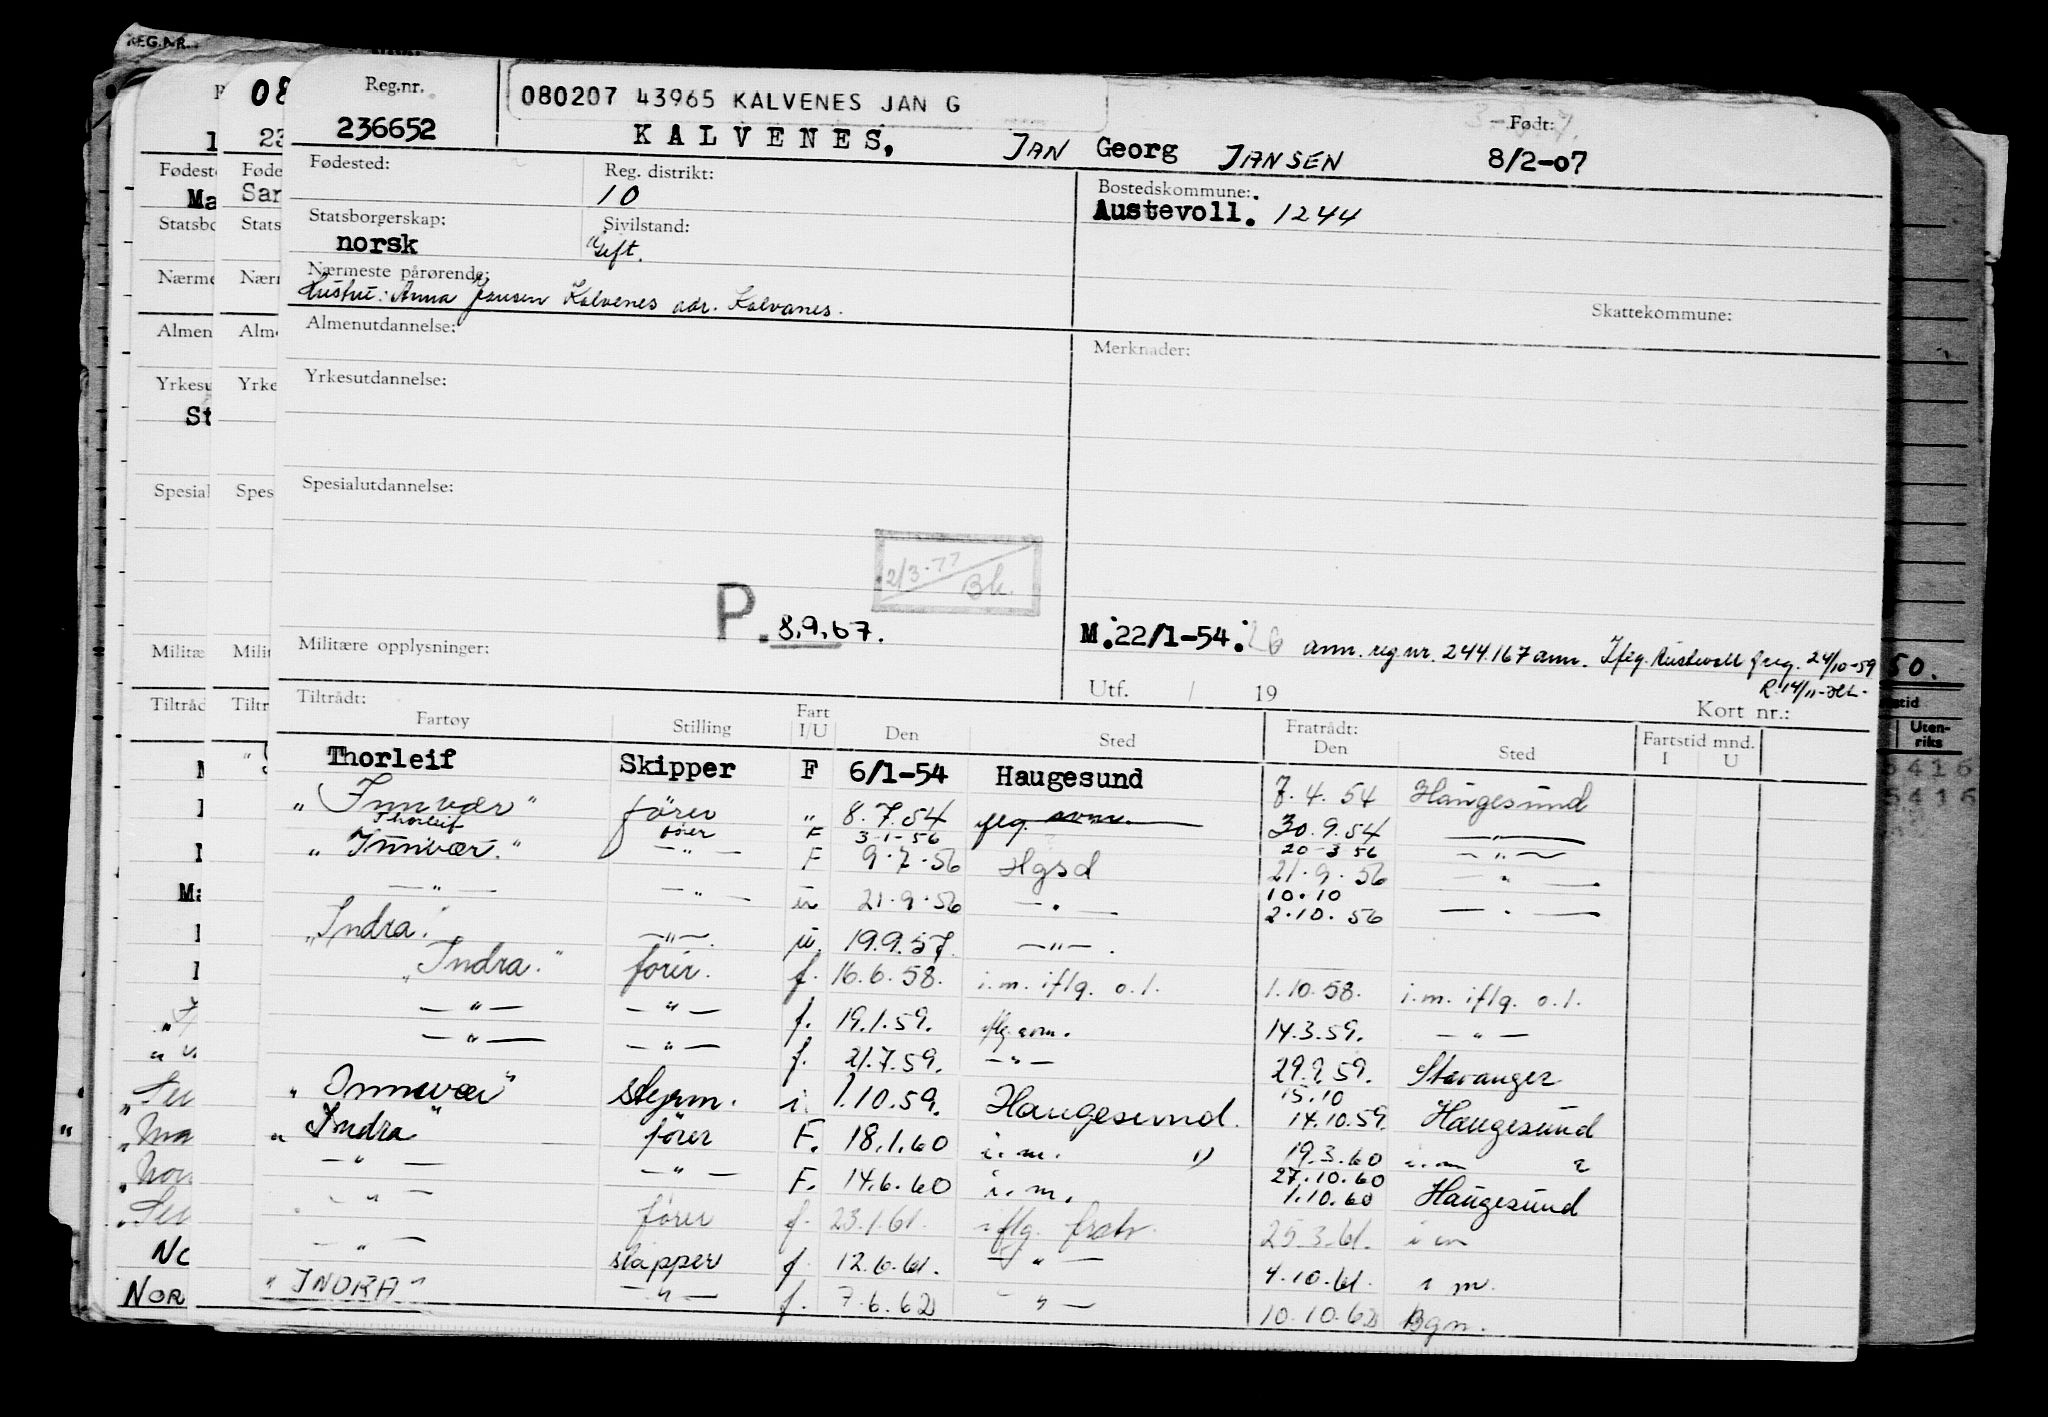 REG.NR.
Reg.nr.
236652
080207 43965 KALVENES JAN G
KALVENES, JAN Georg JANSEN
Født:
8/2-07
Fødested:
Reg. distrikt:
10
Bostedskommune:
Austevoll. 1244
Statsborgerskap:
norsk
Sivilstand:
Gift.
Nærmeste pårørende:
Hustru: Anna Jansen Kalvenes adr. Kalvanes.
Skattekommune:
Almenutdannelse:
Merknader:
Yrkesutdannelse:
Spesialutdannelse:
2/3-77
Bk.
P. 8.9.67.
M.22/1-54. ann. reg nr. 244.167 ann. Ifлg. 24/10-59
R 14/11
Militære opplysninger:
Utf. / 19
Kort nr.:
Tiltrådt:
Fartøy Stilling Fart I/U Den Sted Fratrådt: Den Sted Fartstid mnd. I U
Thorleif Skipper F 6/1-54 Haugesund 7.4.54 Haugesund
"Innvær" fører " 8.7.54 30.9.54 — " —
Thorleif fører F 3-1-56 20-3-56 — " —
"Innvær." — " — F 9.7.56 Hgsd 21.9.56 — " —
— " — — " — u 21.9.56 — " — 10.10 2.10.56 — " —
"Indra." — " — u. 19.9.57. — " —.
"Indra." fører. f. 16.6.58. i.m. iflg. o.l. 1.10.58. i.m. iflg. o.l.
— " — — " — f. 19.1.59. 14.3.59. — " —
— " — — " — f. 21.7.59. — " — 29.9.59. Stavanger
"Innvær" styrm. i. 1.10.59. Haugesund. 15.10 14.10.59. Haugesund
"Indra" fører F. 18.1.60 i.m. 19.3.60 i.m
— " — — " — F. 14.6.60 i.m. 27.10.60 1.10.60 Haugesund
— " — fører f. 23.1.61. iflg. 25.3.61. i m
— " — skipper f. 12.6.61. — " — 4.10.61. i m.
"INDRA" — " — f. 7.6.62 — " — 10.10.62 Bgn.
50.
Uten-
riks
5416
5416